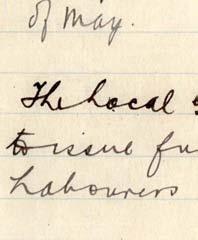 of May.
The Local
to issue fu
Labourers